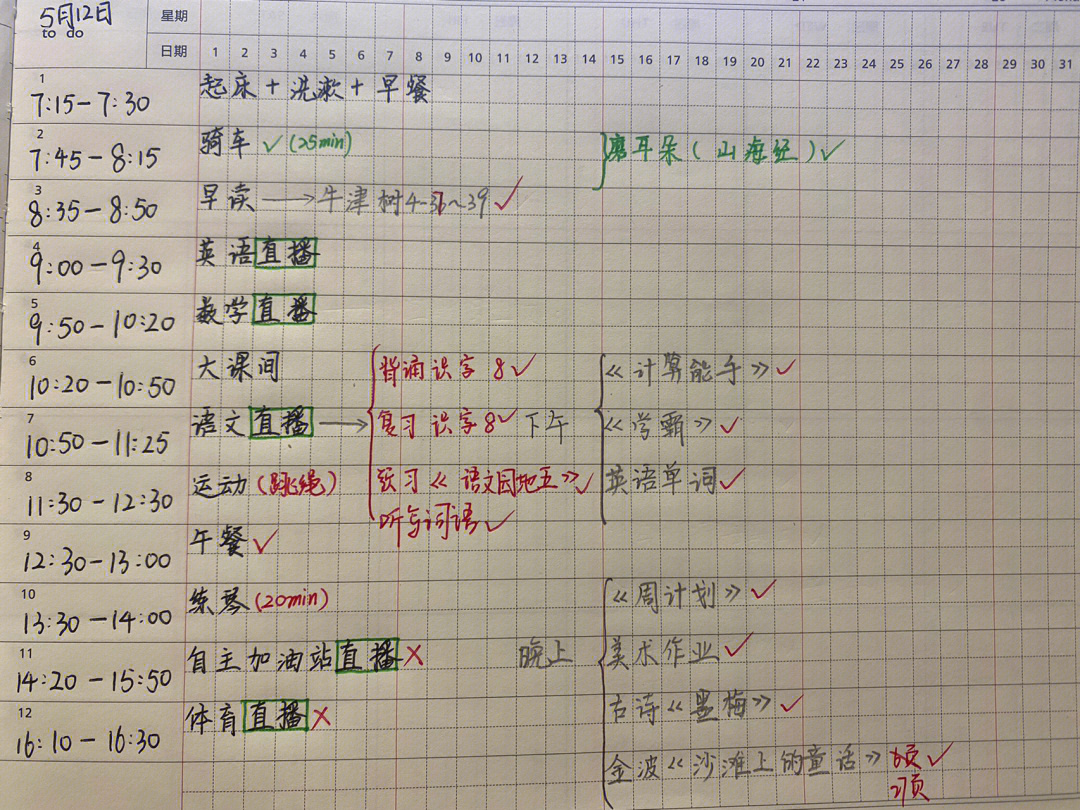 5月12日 星期
to do
日期 1 2 3 4 5 6 7 8 9 10 11 12 13 14 15 16 17 18 19 20 21 22 23 24 25 26 27 28 29 30 31
1 7:15-7:30 起床+洗漱+早餐
2 7:45-8:15 骑车 ✓ (25min) 磨耳朵(山海经)✓
3 8:35-8:50 早读 → 牛津树4-36~39 ✓
4 9:00-9:30 英语直播
5 9:50-10:20 数学直播
6 10:20-10:50 大课间 背诵识字8✓ 《计算能手》✓
7 10:50-11:25 语文直播 → 复习识字8✓ 下午 《学霸》✓
8 11:30-12:30 运动(跳绳) 预习《语文园地五》✓ 英语单词✓
听写词语✓
9 12:30-13:00 午餐✓
10 13:30-14:00 练琴(20min) 《周计划》✓
11 14:20-15:50 自主加油站直播× 晚上 美术作业✓
12 16:10-16:30 体育直播× 古诗《墨梅》✓
金波《沙滩上的童话》 页✓
页